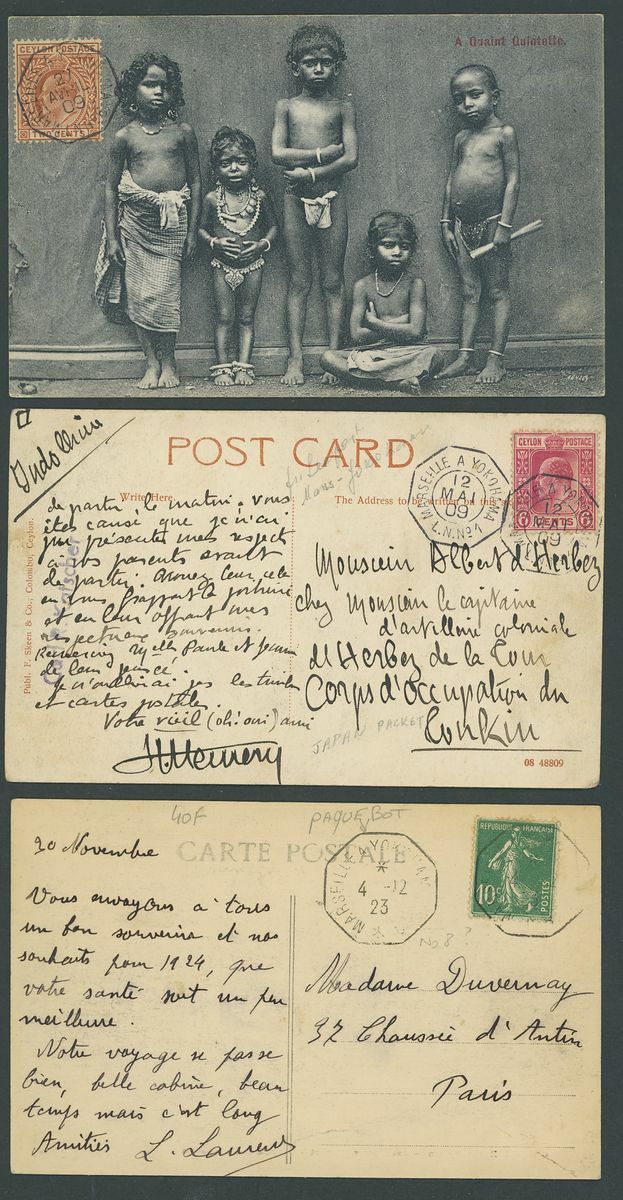 A Quaint Quintette.
CEYLON POSTAGE
TWO CENTS
21
AVRIL
09
Indo Chine
POST CARD
Write Here.
The Address to be written on this
CEYLON POSTAGE
6 CENTS
MARSEILLE A YOKOHAMA
12
MAI
09
L.N. Nº 1
12
MAI
09
de partir, le matin. vous
êtes cause que je n'ai
pu présenter mes respects
à vos parents avant
de partir.
et en leur offrant mes
respectueux souvenirs.
Je n'oublierai pas les timbres
et cartes postales.
Votre vieil (oh! oui) ami
Monsieur Albert d'Herbez
chez Monsieur le capitaine
d'artillerie coloniale
d'Herbez de la Tour
Corps d'occupation du
Tonkin
JAPAN PACKET
08 48809
Publ. F. Skeen & Co., Colombo, Ceylon.
40F
PAQUEBOT
CARTE POSTALE
MARSEILLE A YOKOHAMA
4 -12
23
REPUBLIQUE FRANÇAISE
10c
POSTES
No 8 ?
30 Novembre
Vous envoyons à tous
un bon souvenir et nos
souhaits pour 1924, que
votre santé soit un peu
meilleure.
Notre voyage se passe
bien, belle cabine, beau
temps mais c'est long
Amitiés L. Laurent
Madame Duvernay
37 Chaussée d'Antin
Paris